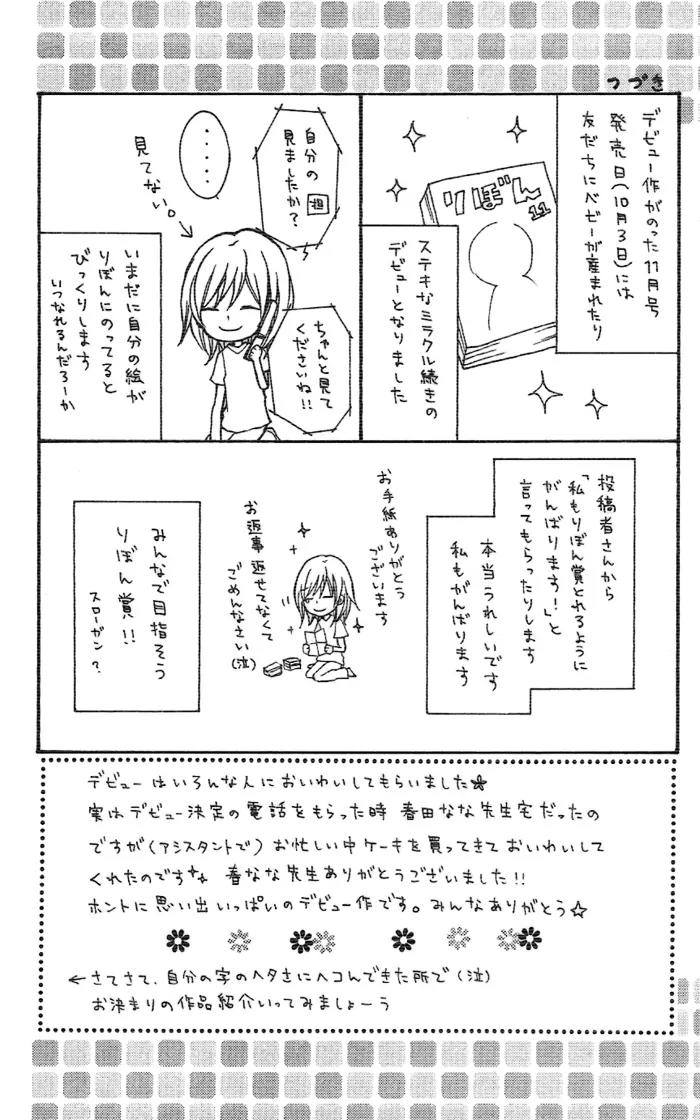 つづき
デビュー作がのった11月号
発売日(10月3日)には
友だちにベビーが産まれたり
りぼん
11
ステキなミラクル続きの
デビューとなりました
自分の
見ましたか?
担
‥‥
見てない。
ちゃんと見て
くださいね!!
いまだに自分の絵が
りぼんにのってると
びっくりします
いつなれるんだろーか
投稿者さんから
「私もりぼん賞とれるように
がんばります!」と
言ってもらったりします
本当うれしいです
私もがんばります
お手紙ありがとう
ございます
お返事返せてなくて
ごめんなさい(泣)
みんなで目指そう
りぼん賞!!
スローガン?
デビューはいろんな人においわいしてもらいました★
実はデビュー決定の電話をもらった時 春田なな先生宅だったの
ですが(アシスタントで) お忙しい中ケーキを買ってきておいわいして
くれたのです 春なな先生ありがとうございました!!
ホントに思い出いっぱいのデビュー作です。みんなありがとう☆
←さてさて、自分の字のヘタさにヘコんできた所で(泣)
お決まりの作品紹介いってみましょーう